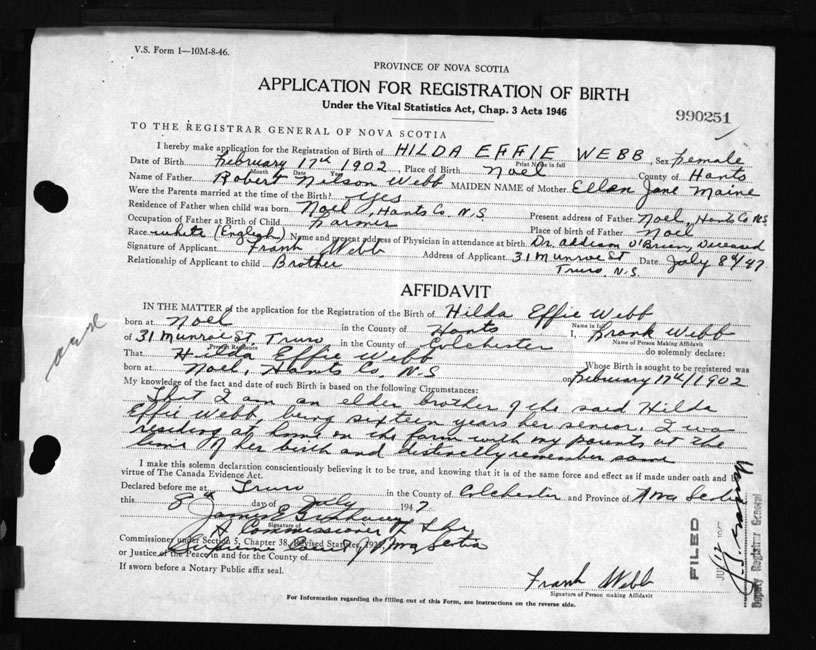 V.S. Form 1—10M-8-46.
PROVINCE OF NOVA SCOTIA
APPLICATION FOR REGISTRATION OF BIRTH
Under the Vital Statistics Act, Chap. 3 Acts 1946
990251
TO THE REGISTRAR GENERAL OF NOVA SCOTIA
I hereby make application for the Registration of Birth of HILDA EFFIE WEBB, Sex Female
Print Name in full
Date of Birth February 17th 1902, Place of Birth Noel County of Hants
Month Date
Name of Father Robert Nelson Webb MAIDEN NAME of Mother Ellen Jane Maine
Were the Parents married at the time of the Birth? Yes
Residence of Father when child was born Noel, Hants Co. N.S. Present address of Father Noel, Hants Co N.S.
Occupation of Father at Birth of Child Farmer Place of birth of Father Noel
Race white (English) Name and present address of Physician in attendance at birth Dr. Addison O'Brien, Deceased
Signature of Applicant Frank Webb Address of Applicant 31 Munroe St Date July 8th/47
Truro, N.S.
Relationship of Applicant to child Brother
AFFIDAVIT
IN THE MATTER of the application for the Registration of the Birth of Hilda Effie Webb
Name in full
born at Noel in the County of Hants I, Frank Webb
Name of Person Making Affidavit
of 31 Munroe St, Truro in the County of Colchester do solemnly declare:
Present Residence
That Hilda Effie Webb Whose Birth is sought to be registered was
born at Noel, Hants Co. N.S on February 17th/1902
My knowledge of the fact and date of such Birth is based on the following Circumstances:
That I am an elder brother of the said Hilda
Effie Webb, being sixteen years her senior. I was
residing at home on the farm with my parents at the
time of her birth and distinctly remember same
I make this solemn declaration conscientiously believing it to be true, and knowing that it is of the same force and effect as if made under oath and by
virtue of The Canada Evidence Act.
Declared before me at Truro in the County of Colchester and Province of Nova Scotia
this 8th day of July 1947
James E
Signature of
A Commissioner of the
Commissioner under Section 5, Chapter 38, Revised Statutes, 192
Supreme Court, Nova Scotia
or Justice of the Peace in and for the County of
If sworn before a Notary Public affix seal.
Frank Webb
Signature of Person making Affidavit
For Information regarding the filling out of this Form, see instructions on the reverse side.
FILED
Deputy Registrar General